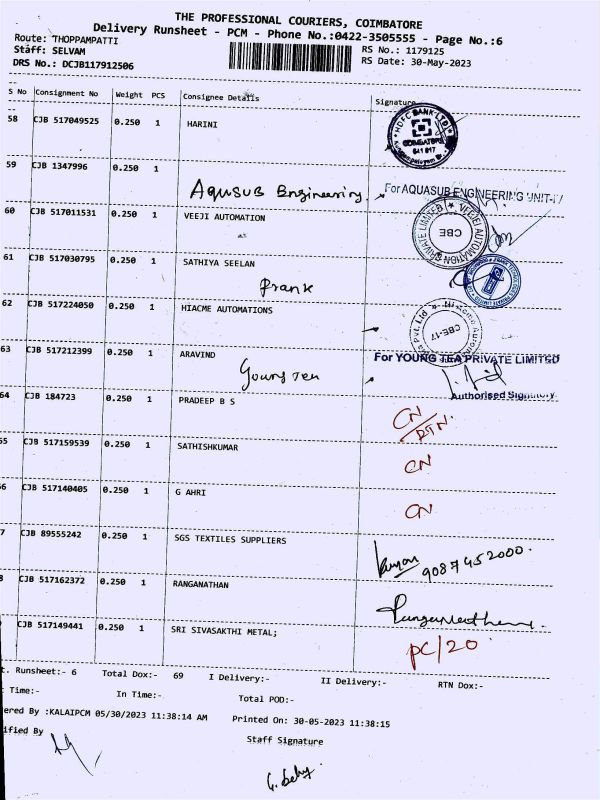 THE PROFESSIONAL COURIERS, COIMBATORE
Delivery Runsheet - PCM - Phone No.:0422-3505555 - Page No.:6
Route: THOPPAMPATTI RS No.: 1179125
Staff: SELVAM RS Date: 30-May-2023
DRS No.: DCJB117912506
S No Consignment No Weight PCS Consignee Details Signature
58 CJB 517049525 0.250 1 HARINI
HDFC BANK LTD
COIMBATORE
641 017
59 CJB 1347996 0.250 1
Aqusub Engineering For AQUASUB ENGINEERING UNIT-IV
60 CJB 517011531 0.250 1 VEEJI AUTOMATION
VEEJEI AUTOMATION PRIVATE LIMITED
CBE
61 CJB 517030795 0.250 1 SATHIYA SEELAN
Prank
62 CJB 517224050 0.250 1 HIACME AUTOMATIONS
CBE-17
63 CJB 517212399 0.250 1 ARAVIND
Young Tea For YOUNG TEA PRIVATE LIMITED
Authorised Signatory
64 CJB 184723 0.250 1 PRADEEP B S
CN/RTN.
65 CJB 517159539 0.250 1 SATHISHKUMAR
CN
66 CJB 517140405 0.250 1 G AHRI
CN
7 CJB 89555242 0.250 1 SGS TEXTILES SUPPLIERS
9087452000.
8 CJB 517162372 0.250 1 RANGANATHAN
CJB 517149441 0.250 1 SRI SIVASAKTHI METAL;
PC/20
t. Runsheet:- 6 Total Dox:- 69 I Delivery:- II Delivery:- RTN Dox:-
Time:- In Time:- Total POD:-
ered By :KALAIPCM 05/30/2023 11:38:14 AM Printed On: 30-05-2023 11:38:15
ified By Staff Signature